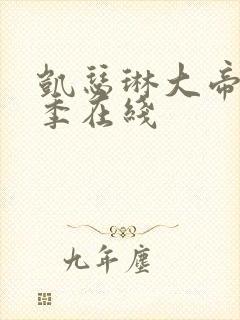 凯瑟琳大帝
季在线
九年尘